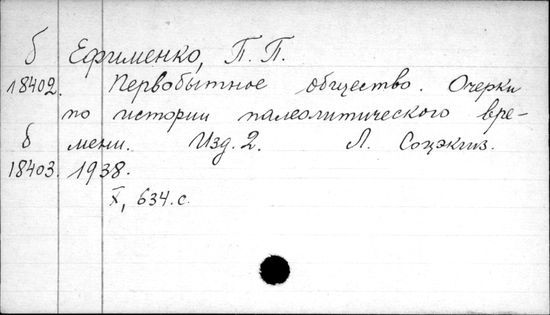 б Ефименко, П. П.
18402. Первобытное общество. Очерки
по истории палеолитического вре-
б мени. Изд. 2. Л. Соцэкгиз.
18403. 1938.
X, 634 с.